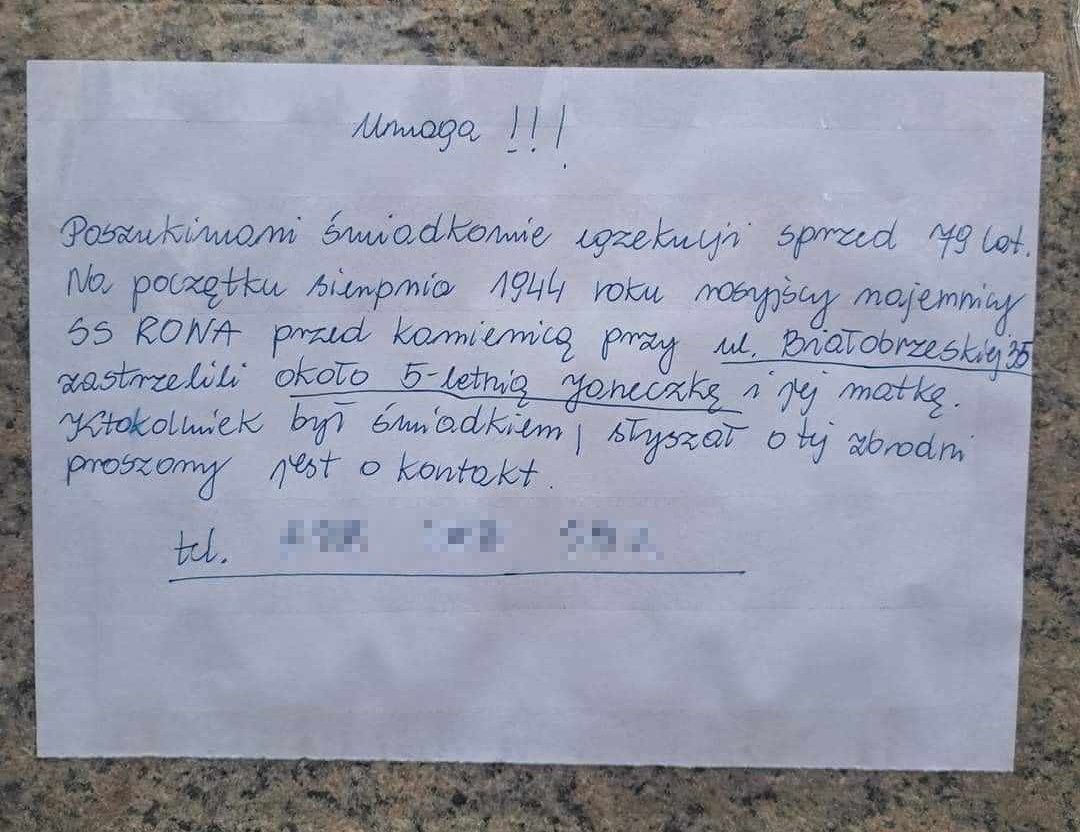 Uwaga !!!
Poszukiwani świadkowie egzekucji sprzed 79 lat.
Na początku sierpnia 1944 roku rosyjscy najemnicy
SS RONA przed kamienicą przy ul. Białobrzeskiej 35
zastrzelili około 5-letnią Janeczkę i jej matkę.
Ktokolwiek był świadkiem, słyszał o tej zbrodni
proszony jest o kontakt.
tel.